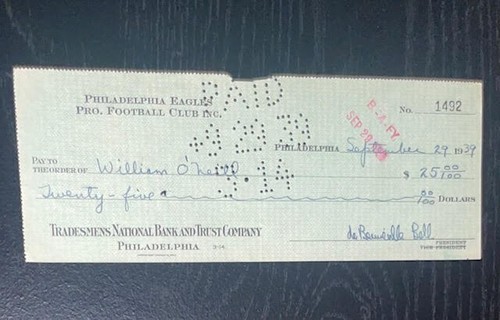 PHILADELPHIA EAGLES
PRO. FOOTBALL CLUB INC.
PAID
No. 1492
B.-A.-FY.
SEP 29
PHILADELPHIA September 29 1939
PAY TO
THE ORDER OF William O'Neill $ 25 00/100
Twenty-five 00/00 DOLLARS
TRADESMENS NATIONAL BANK AND TRUST COMPANY
PHILADELPHIA
de Benneville Bell
PRESIDENT
VICE-PRESIDENT